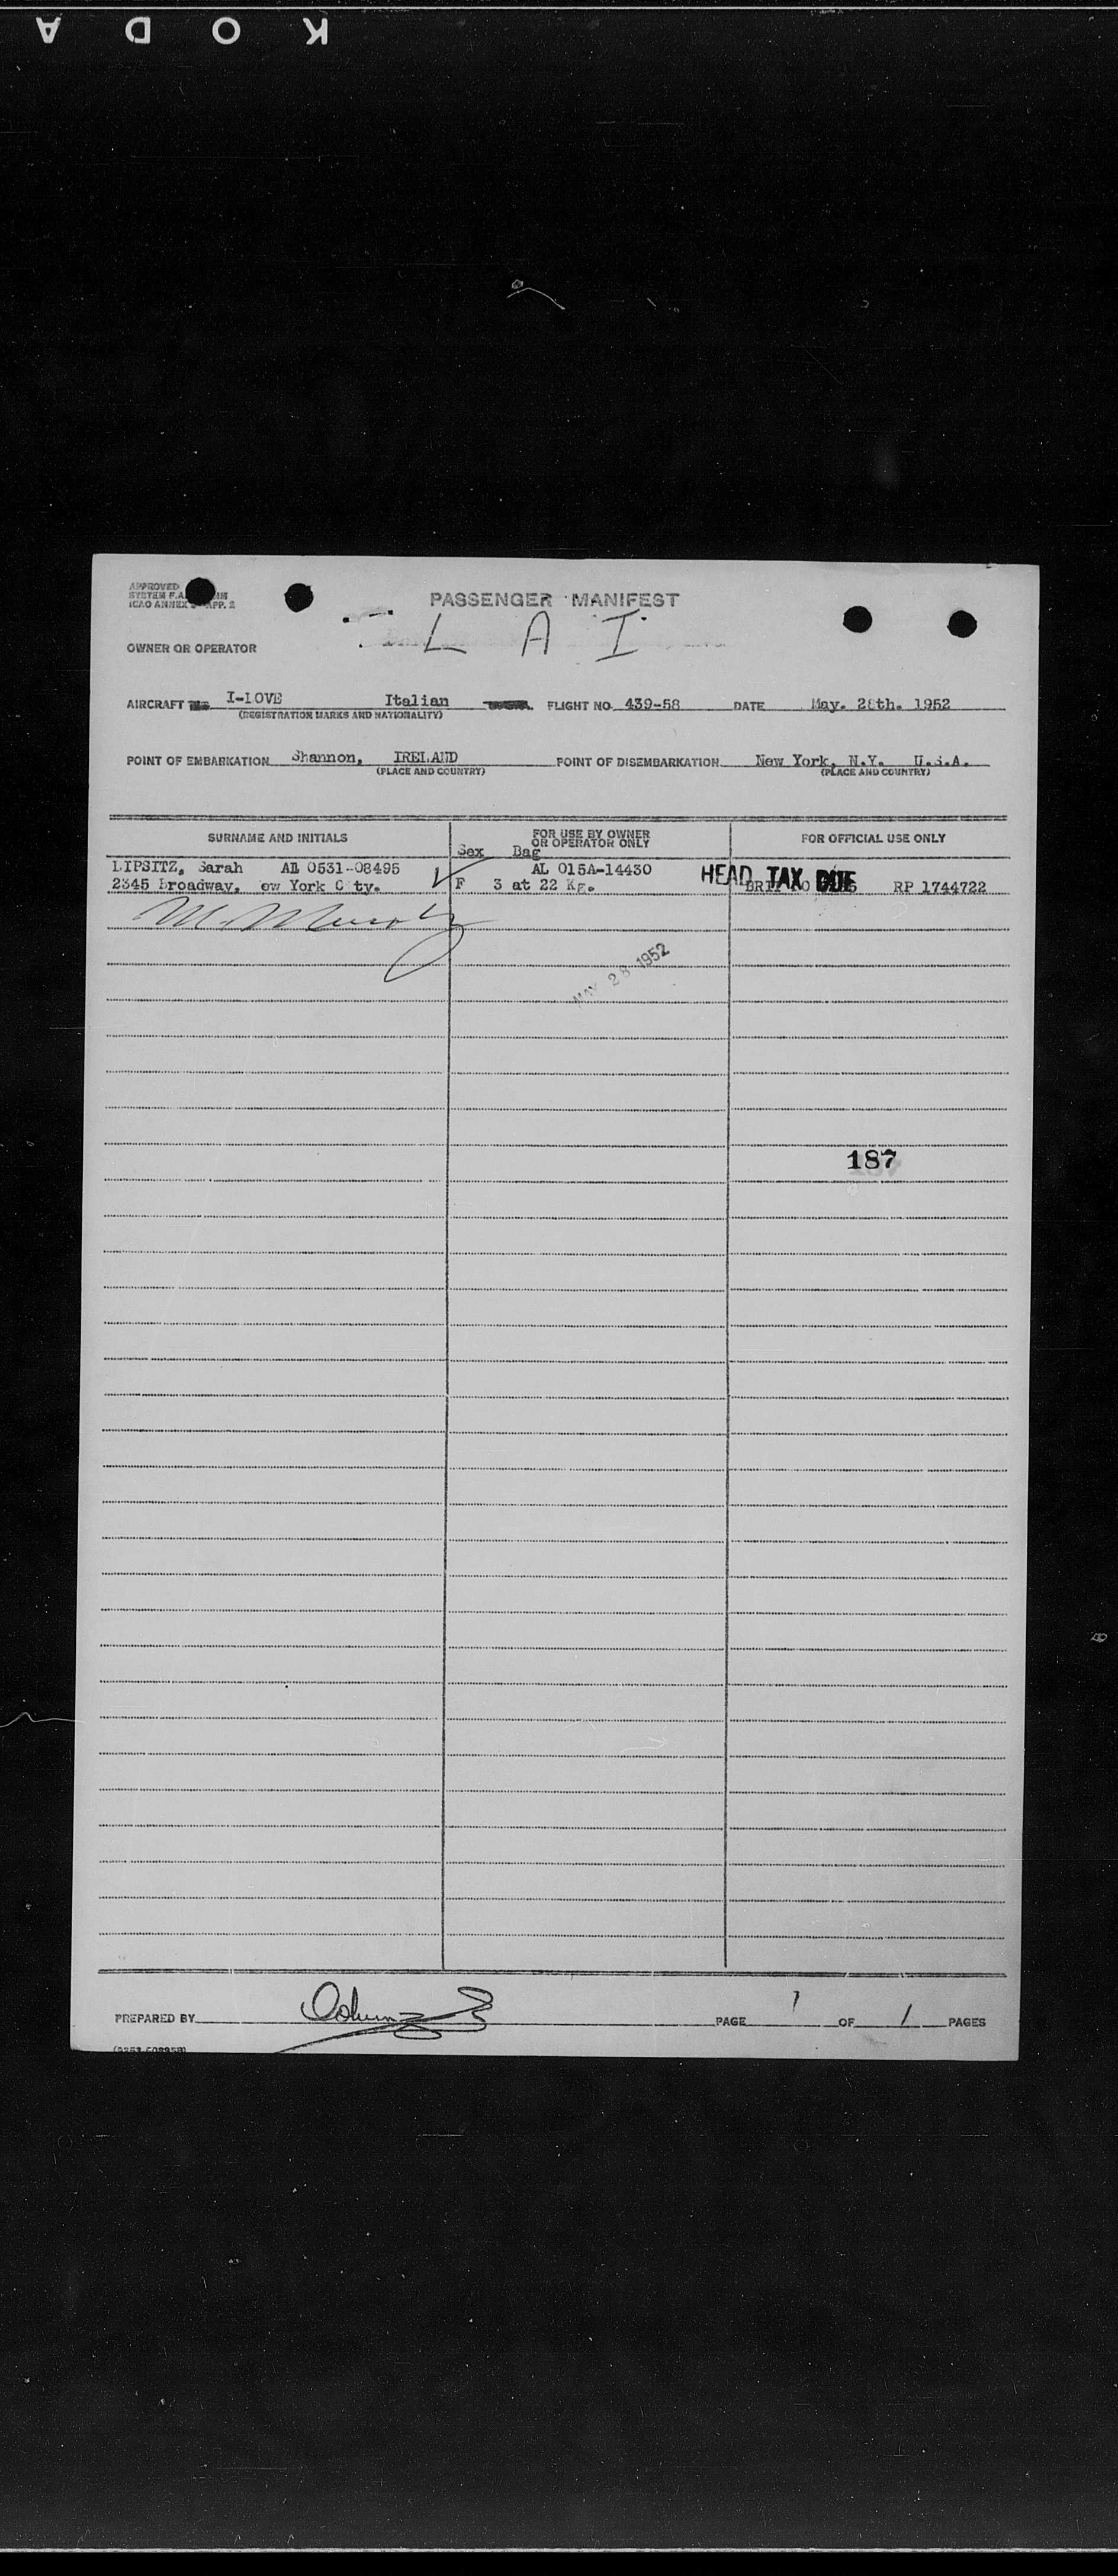 KODA
APPROVED
SYSTEM F.A.
ICAO ANNEX APP. 2
PASSENGER MANIFEST
OWNER OR OPERATOR
L A I
AIRCRAFT I-LOVE Italian FLIGHT NO. 439-58 DATE May. 28th. 1952
(REGISTRATION MARKS AND NATIONALITY)
POINT OF EMBARKATION Shannon, IRELAND POINT OF DISEMBARKATION New York, N.Y. U.S.A.
(PLACE AND COUNTRY) (PLACE AND COUNTRY)
SURNAME AND INITIALS FOR USE BY OWNER OR OPERATOR ONLY FOR OFFICIAL USE ONLY
Sex Bag
LIPSITZ, Sarah 0531-08495 AL 015A-14430 HEAD TAX DUE
2345 Broadway, ew York C ty. F 3 at 22 Kg. RP 1744722
MAY 28 1952
187
PREPARED BY PAGE 1 OF 1 PAGES